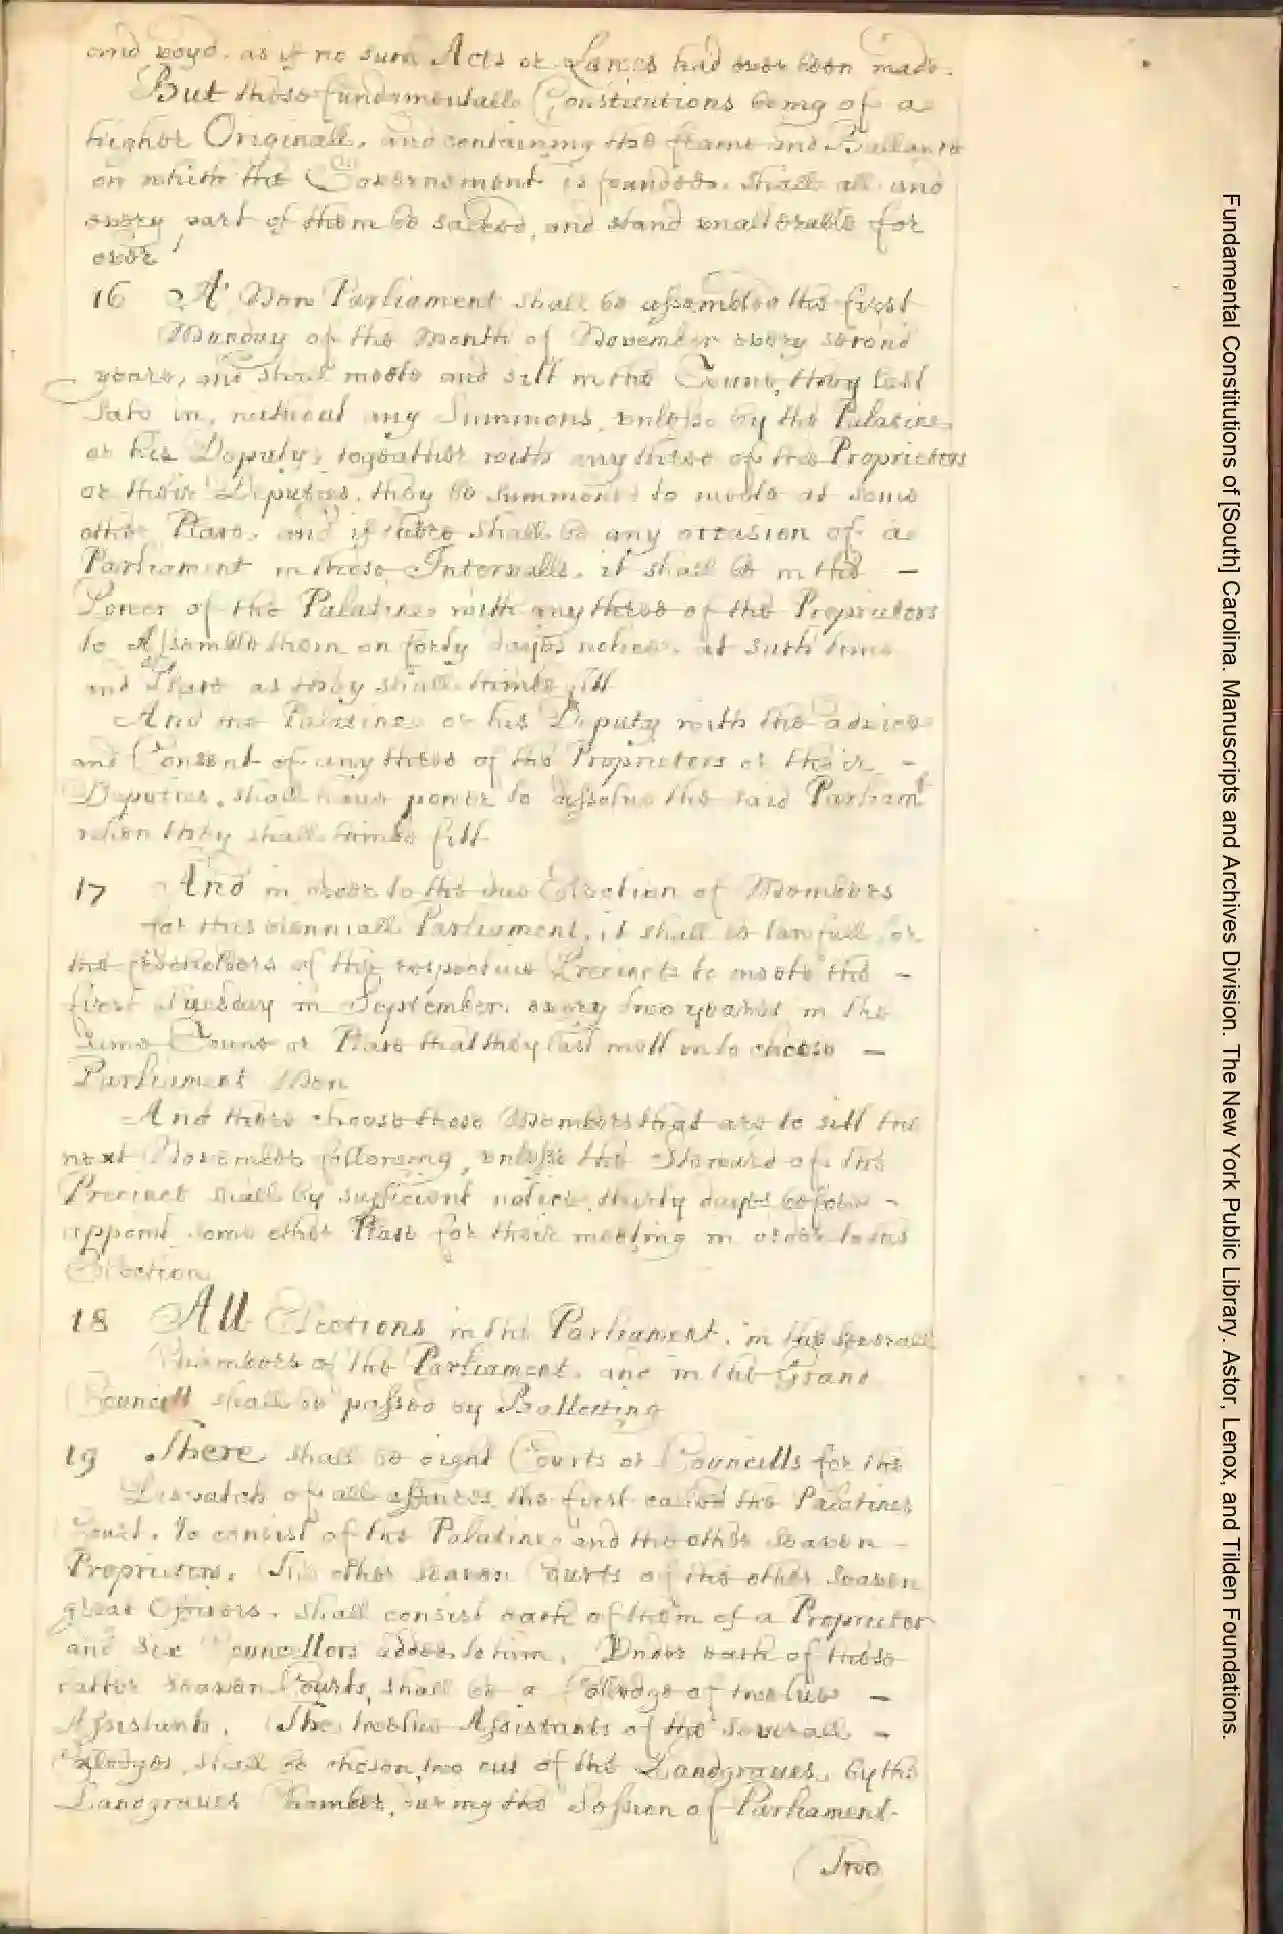 and voyd. as if no such Acts or Lawes had ever been made.
But these fundamentall Constitutions being of a
higher Originall, and containing the frame and Ballance
on which the Government is founded. shall all and
every part of them be sacred, and stand unalterable for
ever
16 A New Parliament shall be assembled the first
Munday of the Month of November every second
yeare, and shall meete and sitt in the Towne they last
sate in, without any Summons, unlesse by the Palatine
or his Deputy, togeather with any three of the Proprietors
or their Deputies, they be summoned to meete at some
other Place. and if there shall be any occasion of a
Parliament in these Intervalls. it shall be in the –
Power of the Palatine with any three of the Proprietors
to Assemble them on forty dayes notice. at such time
and Place as they shall thinke fitt
And the Palatine or his Deputy with the advice
and Consent of any three of the Proprietors or their –
Deputies, shall have power to dissolve the said Parliamt
when they shall thinke fitt
17 And in order to the due Election of Members
for this bienniall Parliament, it shall be lawfull for
the freeholders of the respective Precincts to meete the –
first Tuesday in September. every two yeares in the
same Towne or Place that they last mett in to choose –
Parliament Men
And there choose those Members that are to sitt the
next November following, unlesse the Steward of the
Precinct shall by sufficient notice thirty dayes before –
appoint some other Place for their meeting in order to the
Election
18 All Elections in the Parliament, in the severall
Chambers of the Parliament, and in the Grand
Councill shall be passed by Balletting
19 There shall be eight Courts or Councills for the
Dispatch of all affaires, the first called the Palatines
Court. to consist of the Palatine, and the other seaven –
Proprietors. The other seaven Courts of the other seaven
great Officers. shall consist each of them of a Proprietor
and six Councellors added to him. Under each of these
latter seaven Courts, shall be a Colledge of twelve –
Assistants. The twelve Assistants of the severall –
Colledges, shall be chosen, two out of the Landgraves, by the
Landgraves Chamber, during the Session of Parliament.
Two
Fundamental Constitutions of [South] Carolina. Manuscripts and Archives Division. The New York Public Library. Astor, Lenox, and Tilden Foundations.